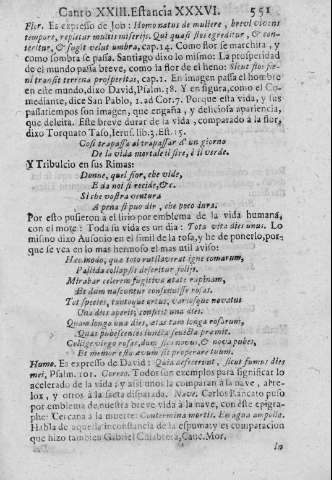 Canto XXIII. Estancia XXXVI. 551
Flor. Es expresso de Job: Homo natus de muliere, brevi vivens
tempore, repletur multis miserijs. Qui quasi flos egreditur, & con-
teritur, & fugit velut umbra, cap. 14. Como flor se marchita, y
como sombra se passa. Santiago dixo lo mismo: La prosperidad
de el mundo passa breve, como la flor de el heno: Sicut flos fœ-
ni transit terrena prosperitas, cap. 1. En imagen passa el hombre
en este mundo, dixo David, Psalm. 38. Y en figura, como el Co-
mediante, dice San Pablo, 1. ad Cor. 7. Porque esta vida, y sus
passatiempos son imagen, que engaña, y deliciosa apariencia,
que deleita. Este breve durar de la vida, comparado à la flor,
dixo Torquato Tasso, Ierus. lib. 3. Est. 15.
Cosi trapassa al trapassar d' un giorno
De la vida mortale il fiore, è il verde.
Y Tribulcio en sus Rimas:
Donne, quel fior, che vide,
E da noi si recide, &c.
Si che vostra ventura
A pena si puo dir, che poco dura.
Por esto pusieron à el lirio por emblema de la vida humana,
con el mote: Toda su vida es un dia: Tota vita dies unus. Lo
mismo dixo Ausonio en el simil de la rosa, y he de ponerlo, por-
que se vea en lo mas hermoso el mas util aviso:
Hæc modo, quæ toto rutilaverat igne comarum,
Pallida collapsis deseritur folijs.
Mirabar celerem fugitiva ætate rapinam,
Et dum nascuntur consenuisse rosas.
Tot species, tantosque ortus, variosque novatus
Una dies aperit, conficit una dies.
Quam longa una dies, ætas tam longa rosarum,
Quas pubescentes iuncta senecta premit.
Collige virgo rosas, dum flos novus, & nova pubes,
Et memor esto ævum sic properare tuum.
Humo. Es expresso de David: Quia defecerunt, sicut fumus dies
mei, Psalm. 101. Correo. Todos son exemplos para significar lo
acelerado de la vida; y assi unos la comparan à la nave, al re-
lox, y otros à la saeta disparada. Nave. Carlos Rancato puso
por emblema de nuestra breve vida à la nave, con este epigra-
phe: Cercana à la muerte: Contermina mortis. En agua ampolla.
Habla de aquella inconstancia de la espuma; y es comparacion
que hizo tambien Gabriel